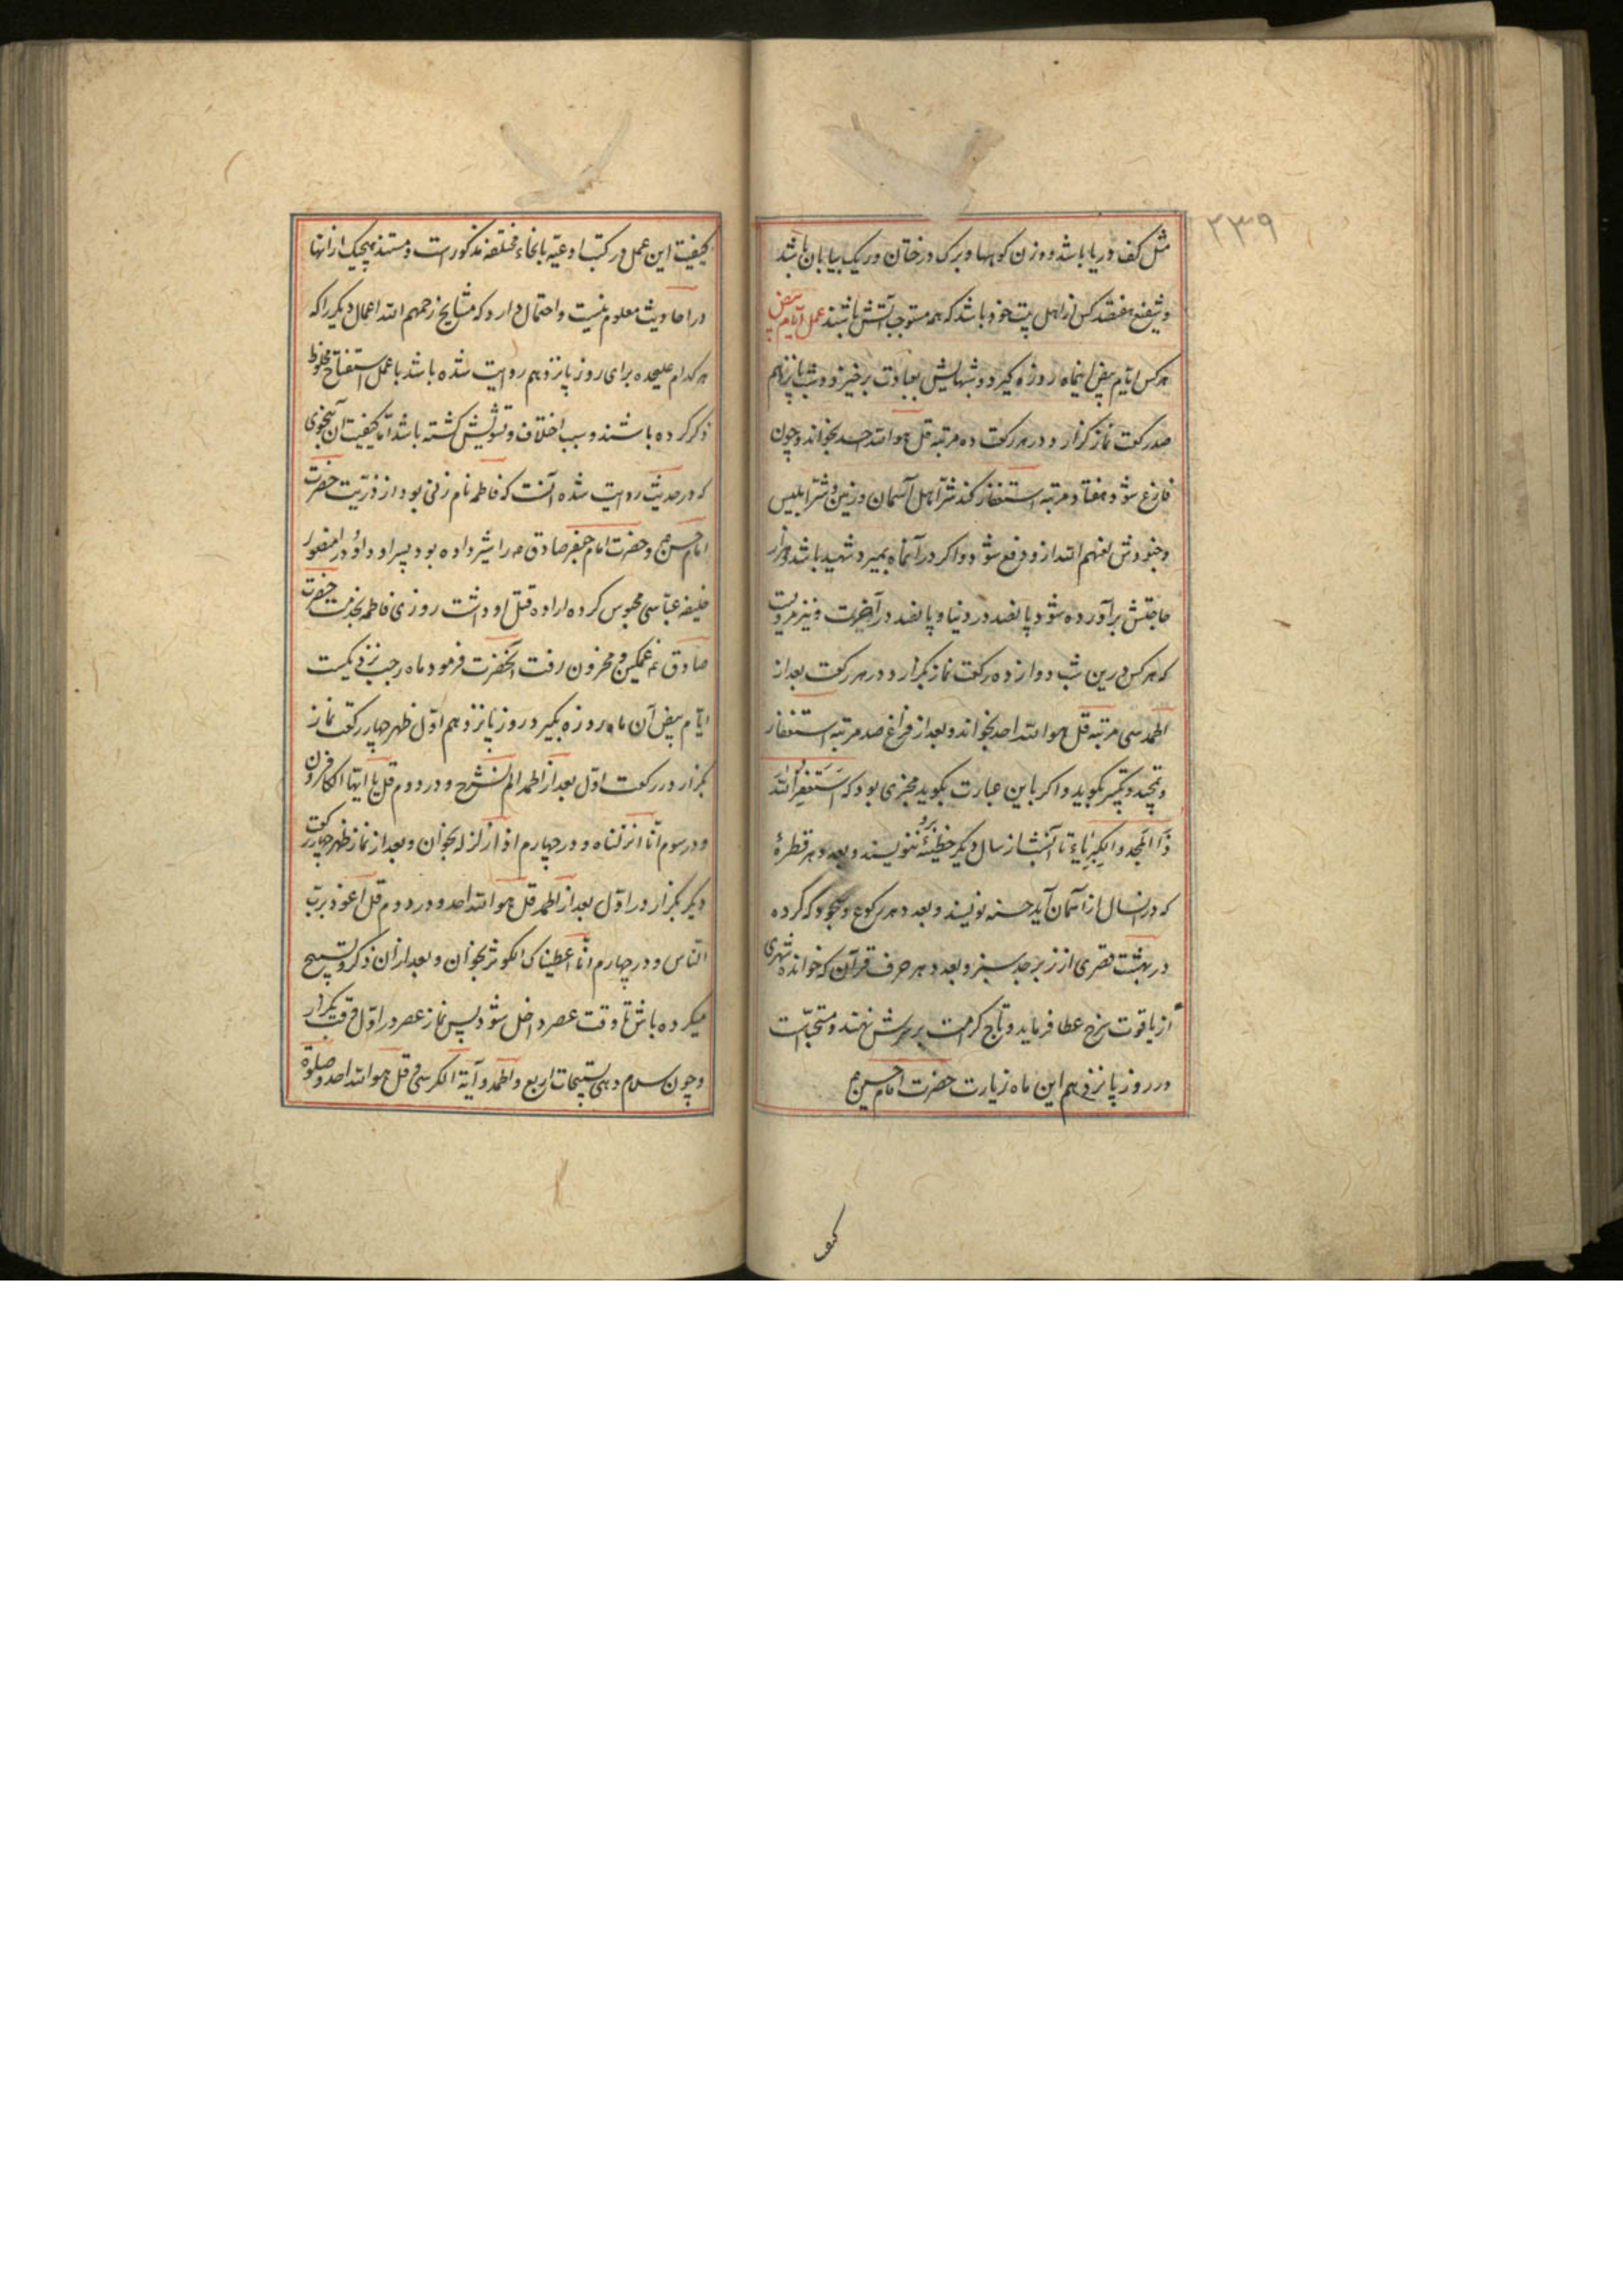 ۲۳۹
مثل کف دریا باشد و وزن کوهها و برک درختان و ریک بیابان باشد
و شفیع هفتصد کس از اهل بیت خود باشد که همه مستوجب آتش باشند عمل ایام بیض
هر کس ایام بیض اینماه روزه کیرد و شبهایش بعبادت برخیزد و شب پانزدهم
صد رکعت نماز کزارد و در هر رکعت ده مرتبه قل هو الله احد بخواند و چون
فارغ شود هفتاد مرتبه استغفار کند شر اهل آسمان و زمین و شر ابلیس
و جنودش لعنهم الله ازو دفع شود و اکر در آنماه بمیرد شهید باشد و هزار
حاجتش برآورده شود پانصد در دنیا و پانصد در آخرت و نیز مرویست
که هر کس درین شب دوازده رکعت نماز بکزارد و در هر رکعت بعد از
الحمد سی مرتبه قل هو الله احد بخواند و بعد از فراغ صد مرتبه استغفار
و تحمید و تکبیر بکوید و اکر باین عبارت بکوید مجزی بود که استغفر الله
ذا المجد و الکبریاء تا آنشب از سال دیکر خطیئه برو ننویسند و بعدد هر قطرهٔ
که در انسال از آسمان آید حسنه نویسند و بعدد هر رکوع و سجود که کرده
در بهشت قصری از زبرجد سبز و بعدد هر حرف قرآن که خوانده شهری
از یاقوت سرخ عطا فرماید و تاج کرامت بر سرش نهند و مستحب است
در روز پانزدهم این ماه زیارت حضرت امام حسین ع
کیف
کیفیت این عمل در کتب ادعیه بانحاء مختلفه مذکور است و مستند هیچیک از انها
در احادیث معلوم نیست و احتمال دارد که مشایخ رحمهم الله اعمال دیکر را که
هر کدام علیحده برای روز پانزدهم روایت شده باشد با عمل استفتاح مخلوط
ذکر کرده باشند و سبب اختلاف و تشویش کشته باشد اما کیفیت آن بنحوی
که در حدیث روایت شده آنست که فاطمه نام زنی بود از ذریت حضرت
امام حسن ع و حضرت امام جعفر صادق ع را شیر داده بود و پسر او داود را منصور
خلیفه عباسی محبوس کرده اراده قتل او داشت روزی فاطمه بخدمت حضرت
صادق ع غمکین و محزون رفت آنحضرت فرمود ماه رجب نزدیکست
ایام بیض آن ماه روزه بکیر و روز پانزدهم اول ظهر چهار رکعت نماز
بکزار در رکعت اول بعد از الحمد الم نشرح و در دوم قل یا ایها الکافرون
و در سوم انا انزلناه و در چهارم اذا زلزله بخوان و بعد از نماز ظهر چهار رکعت
دیکر بکزار در اول بعد از الحمد قل هو الله احد و در دوم قل اعوذ برب
الناس و در چهارم انا اعطیناک الکوثر بخوان و بعد از ان ذکر و تسبیح
میکرده باش تا وقت عصر داخل شود پس نماز عصر در اول وقت بکزار
و چون سلام دهی تسبیحات اربع و الحمد و آیة الکرسی و قل هو الله احد و صلوة